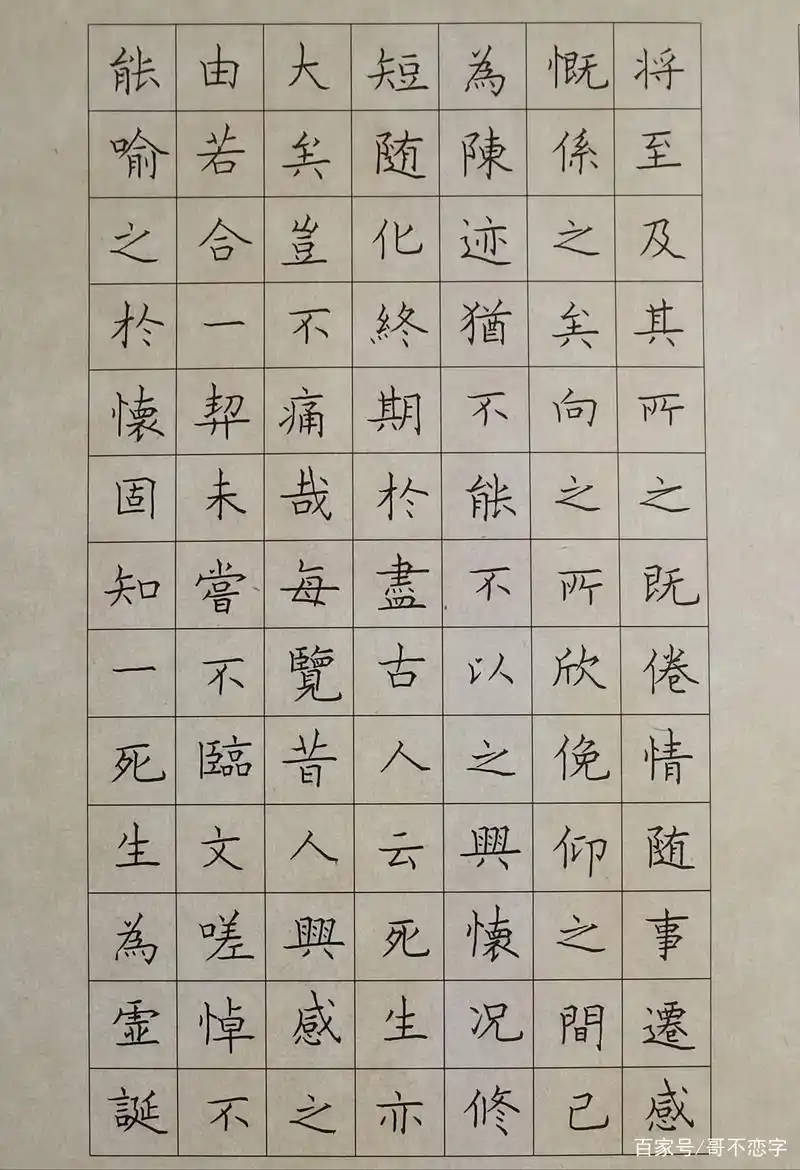 将至及其所之既倦情随事遷感
慨係之矣向之所欣俛仰之間已
為陳迹猶不能不以之興懷况修
短随化終期於盡古人云死生亦
大矣豈不痛哉每覽昔人興感之
由若合一契未嘗不臨文嗟悼不
能喻之於懷固知一死生為虛誕
百家号/哥不恋字